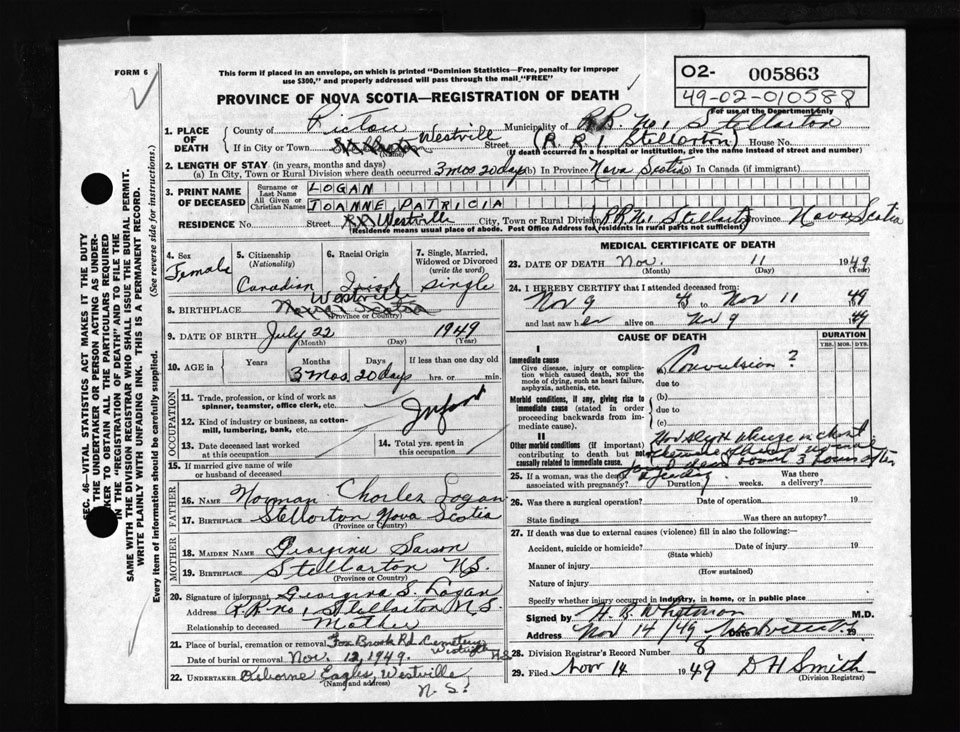 FORM 6
This form if placed in an envelope, on which is printed "Dominion Statistics—Free, penalty for improper
use $300," and properly addressed will pass through the mail "FREE"
PROVINCE OF NOVA SCOTIA—REGISTRATION OF DEATH
02- 005863
49-02-010588
For use of the Department only
SEC. 46—VITAL STATISTICS ACT MAKES IT THE DUTY
OF THE UNDERTAKER OR PERSON ACTING AS UNDER-
TAKER TO OBTAIN ALL THE PARTICULARS REQUIRED
IN THE "REGISTRATION OF DEATH" AND TO FILE THE
SAME WITH THE DIVISION REGISTRAR WHO SHALL ISSUE THE BURIAL PERMIT.
WRITE PLAINLY WITH UNFADING INK. THIS IS A PERMANENT RECORD.
Every item of information should be carefully supplied. (See reverse side for instructions.)
1. PLACE OF DEATH
County of Pictou Municipality of R.R. No 1 Stellarton
If in City or Town Westville (Name) Street (R.R. 1 Stellarton) House No.
(If death occurred in a hospital or institution, give the name instead of street and number)
2. LENGTH OF STAY (in years, months and days)
(a) In City, Town or Rural Division where death occurred 3 mos 20 days (b) In Province Nova Scotia (c) In Canada (if immigrant)
3. PRINT NAME OF DECEASED
Surname or Last Name LOGAN
All Given or Christian Names JOANNE PATRICIA
RESIDENCE No. Street Westville City, Town or Rural Division R.R. No 1 Stellarton Province Nova Scotia
(Residence means usual place of abode. Post Office Address for residents in rural parts not sufficient)
4. Sex Female
5. Citizenship (Nationality) Canadian
6. Racial Origin Irish
7. Single, Married, Widowed or Divorced (write the word) Single
8. BIRTHPLACE Westville Nova Scotia
(Province or Country)
9. DATE OF BIRTH July 22 1949
(Month) (Day) (Year)
10. AGE in Years Months Days If less than one day old
3 mos. 20 days hrs. or min.
OCCUPATION
11. Trade, profession, or kind of work as
spinner, teamster, office clerk, etc.
12. Kind of industry or business, as cotton-
mill, lumbering, bank, etc.
Infant
13. Date deceased last worked
at this occupation
14. Total yrs. spent in
this occupation
15. If married give name of wife
or husband of deceased
FATHER
16. NAME Norman Charles Logan
17. BIRTHPLACE Stellarton Nova Scotia
(Province or Country)
MOTHER
18. MAIDEN NAME Georgina Sarson
19. BIRTHPLACE Stellarton N.S.
(Province or Country)
20. Signature of informant Georgina S. Logan
Address R.R. no 1 Stellarton N.S.
Relationship to deceased Mother
21. Place of burial, cremation or removal Fox Brook Rd. Cemetery Westville N.S.
Date of burial or removal Nov. 12, 1949.
22. UNDERTAKER Osborne Eagles, Westville,
(Name and address) N.S.
MEDICAL CERTIFICATE OF DEATH
23. DATE OF DEATH Nov. 11 1949
(Month) (Day) (Year)
24. I HEREBY CERTIFY that I attended deceased from:
Nov 9 to Nov 11 49
and last saw her alive on Nov 9 49
CAUSE OF DEATH
DURATION
YRS. MOS. DYS.
I
Immediate cause
Give disease, injury or complica-
tion which caused death, NOT the
mode of dying, such as heart failure,
asphyxia, asthenia, etc.
(a) Convulsion ?
due to
Morbid conditions, if any, giving rise to
immediate cause (stated in order
proceeding backwards from im-
mediate cause).
(b)
due to
(c)
II
Other morbid conditions (if important)
contributing to death but not
causally related to immediate cause.
Had slight wheeze in chest
3 hours after
25. If a woman, was the death
associated with pregnancy? Duration weeks. Was there
a delivery?
26. Was there a surgical operation? Date of operation 19
State findings Was there an autopsy?
27. If death was due to external causes (violence) fill in also the following:—
Accident, suicide or homicide? Date of injury 19
(State which)
Manner of injury
(How sustained)
Nature of injury
Specify whether injury occurred in industry, in home, or in public place
Signed by M.D.
Address Nov 14/49 Westville
28. Division Registrar's Record Number 8
29. Filed Nov 14 1949 D H Smith
(Division Registrar)